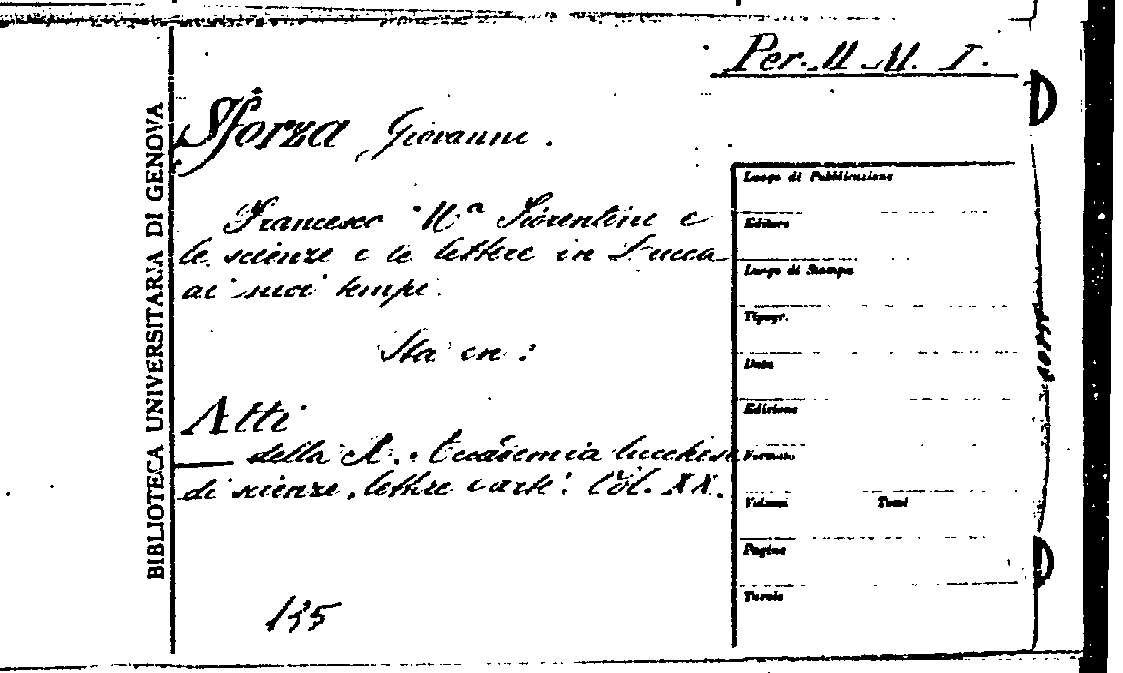 Per. M. M. I.
Sforza, Giovanni.
Francesco Mª Fiorentini e
le scienze e le lettere in Lucca
ai suoi tempi.
Sta in:
Atti
della R. Accademia lucchese
di scienze, lettere e arti. Vol. XX.
135
BIBLIOTECA UNIVERSITARIA DI GENOVA
Luogo di Pubblicazione
Editore
Luogo di Stampa
Tipogr.
Data
Edizione
Formato
Volumi Tomi
Pagine
Tavole